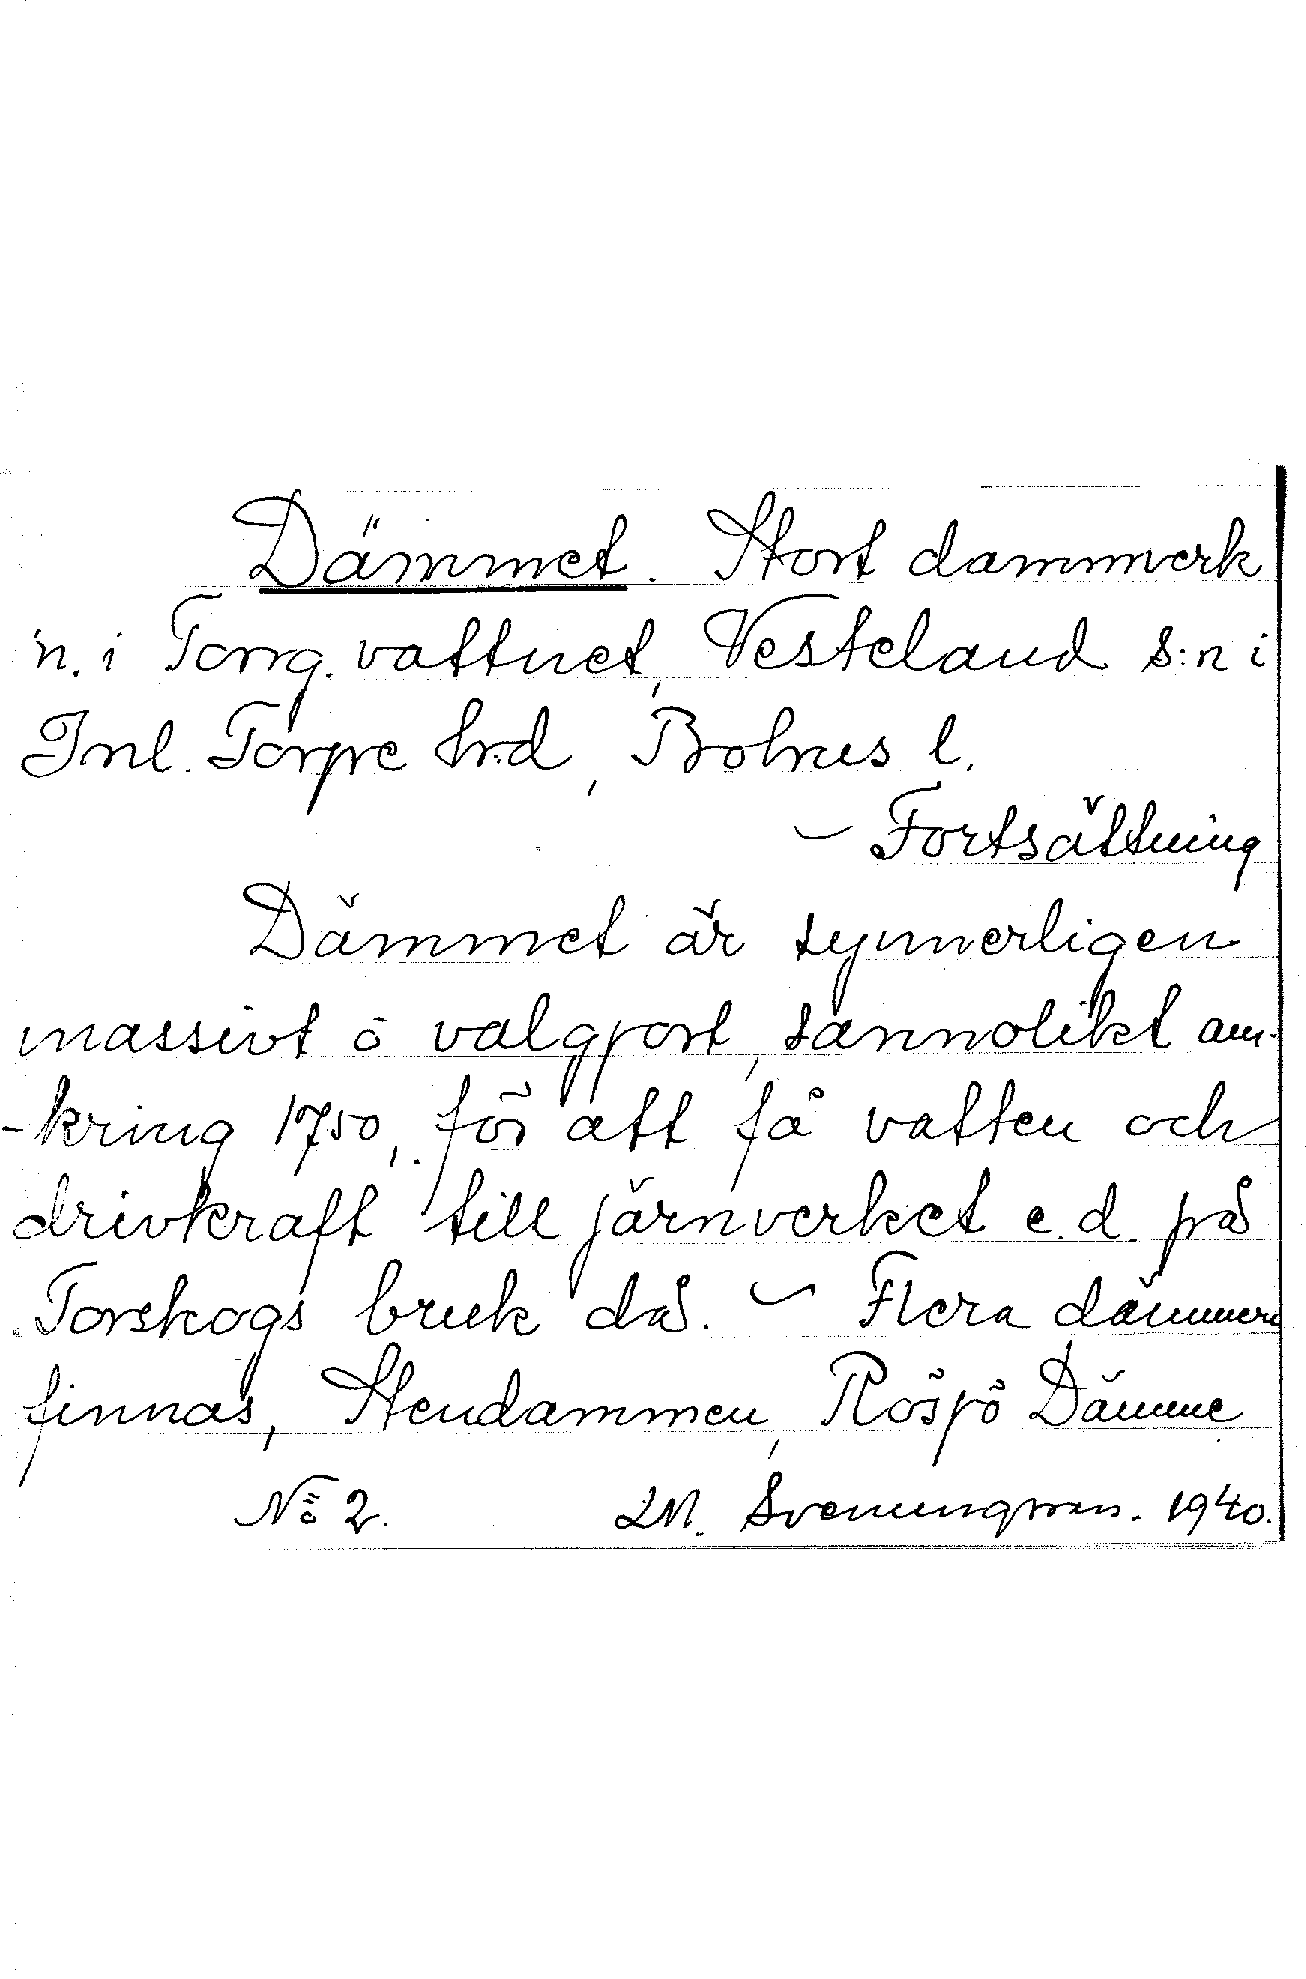 Dämmet. Stort dammverk
n. i Torrg. vattnet, Vesteland s:n i
Inl. Torpe hrd, Bohus l.
– Fortsättning
Dämmet är synnerligen
massivt o valgjort, sannolikt om-
-kring 1750, för att få vatten och
drivkraft till järnverket e.d. på
Torskogs bruk då. – Flera dämmen
finnas, Stendammen, Rösjö Dämme
No 2. M. Svenungsson. 1940.